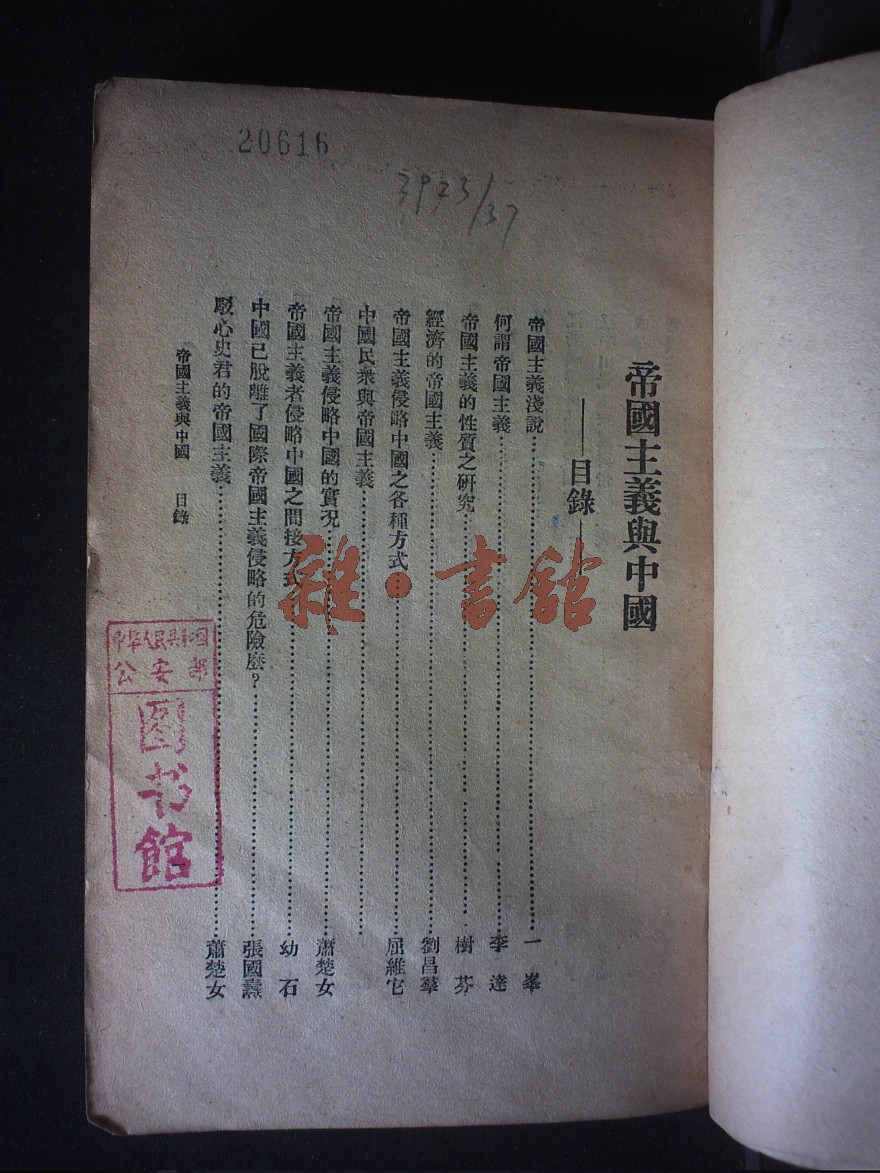 20616
3925/37
帝國主義與中國
——目錄——
帝國主義淺說⋯⋯⋯⋯⋯⋯一峯
何謂帝國主義⋯⋯⋯⋯⋯⋯李達
帝國主義的性質之研究⋯⋯⋯⋯⋯⋯樹芬
經濟的帝國主義⋯⋯⋯⋯⋯⋯劉昌羣
帝國主義侵略中國之各種方式⋯⋯⋯⋯⋯⋯屈維它
中國民衆與帝國主義⋯⋯⋯⋯⋯⋯
帝國主義侵略中國的實況⋯⋯⋯⋯⋯⋯蕭楚女
帝國主義者侵略中國之間接方式⋯⋯⋯⋯⋯⋯幼石
中國已脫離了國際帝國主義侵略的危險麼？⋯⋯⋯⋯⋯⋯張國燾
駁心史君的帝國主義⋯⋯⋯⋯⋯⋯蕭楚女
帝國主義與中國 目錄
中华人民共和国
公安部
图书馆
雜·書館